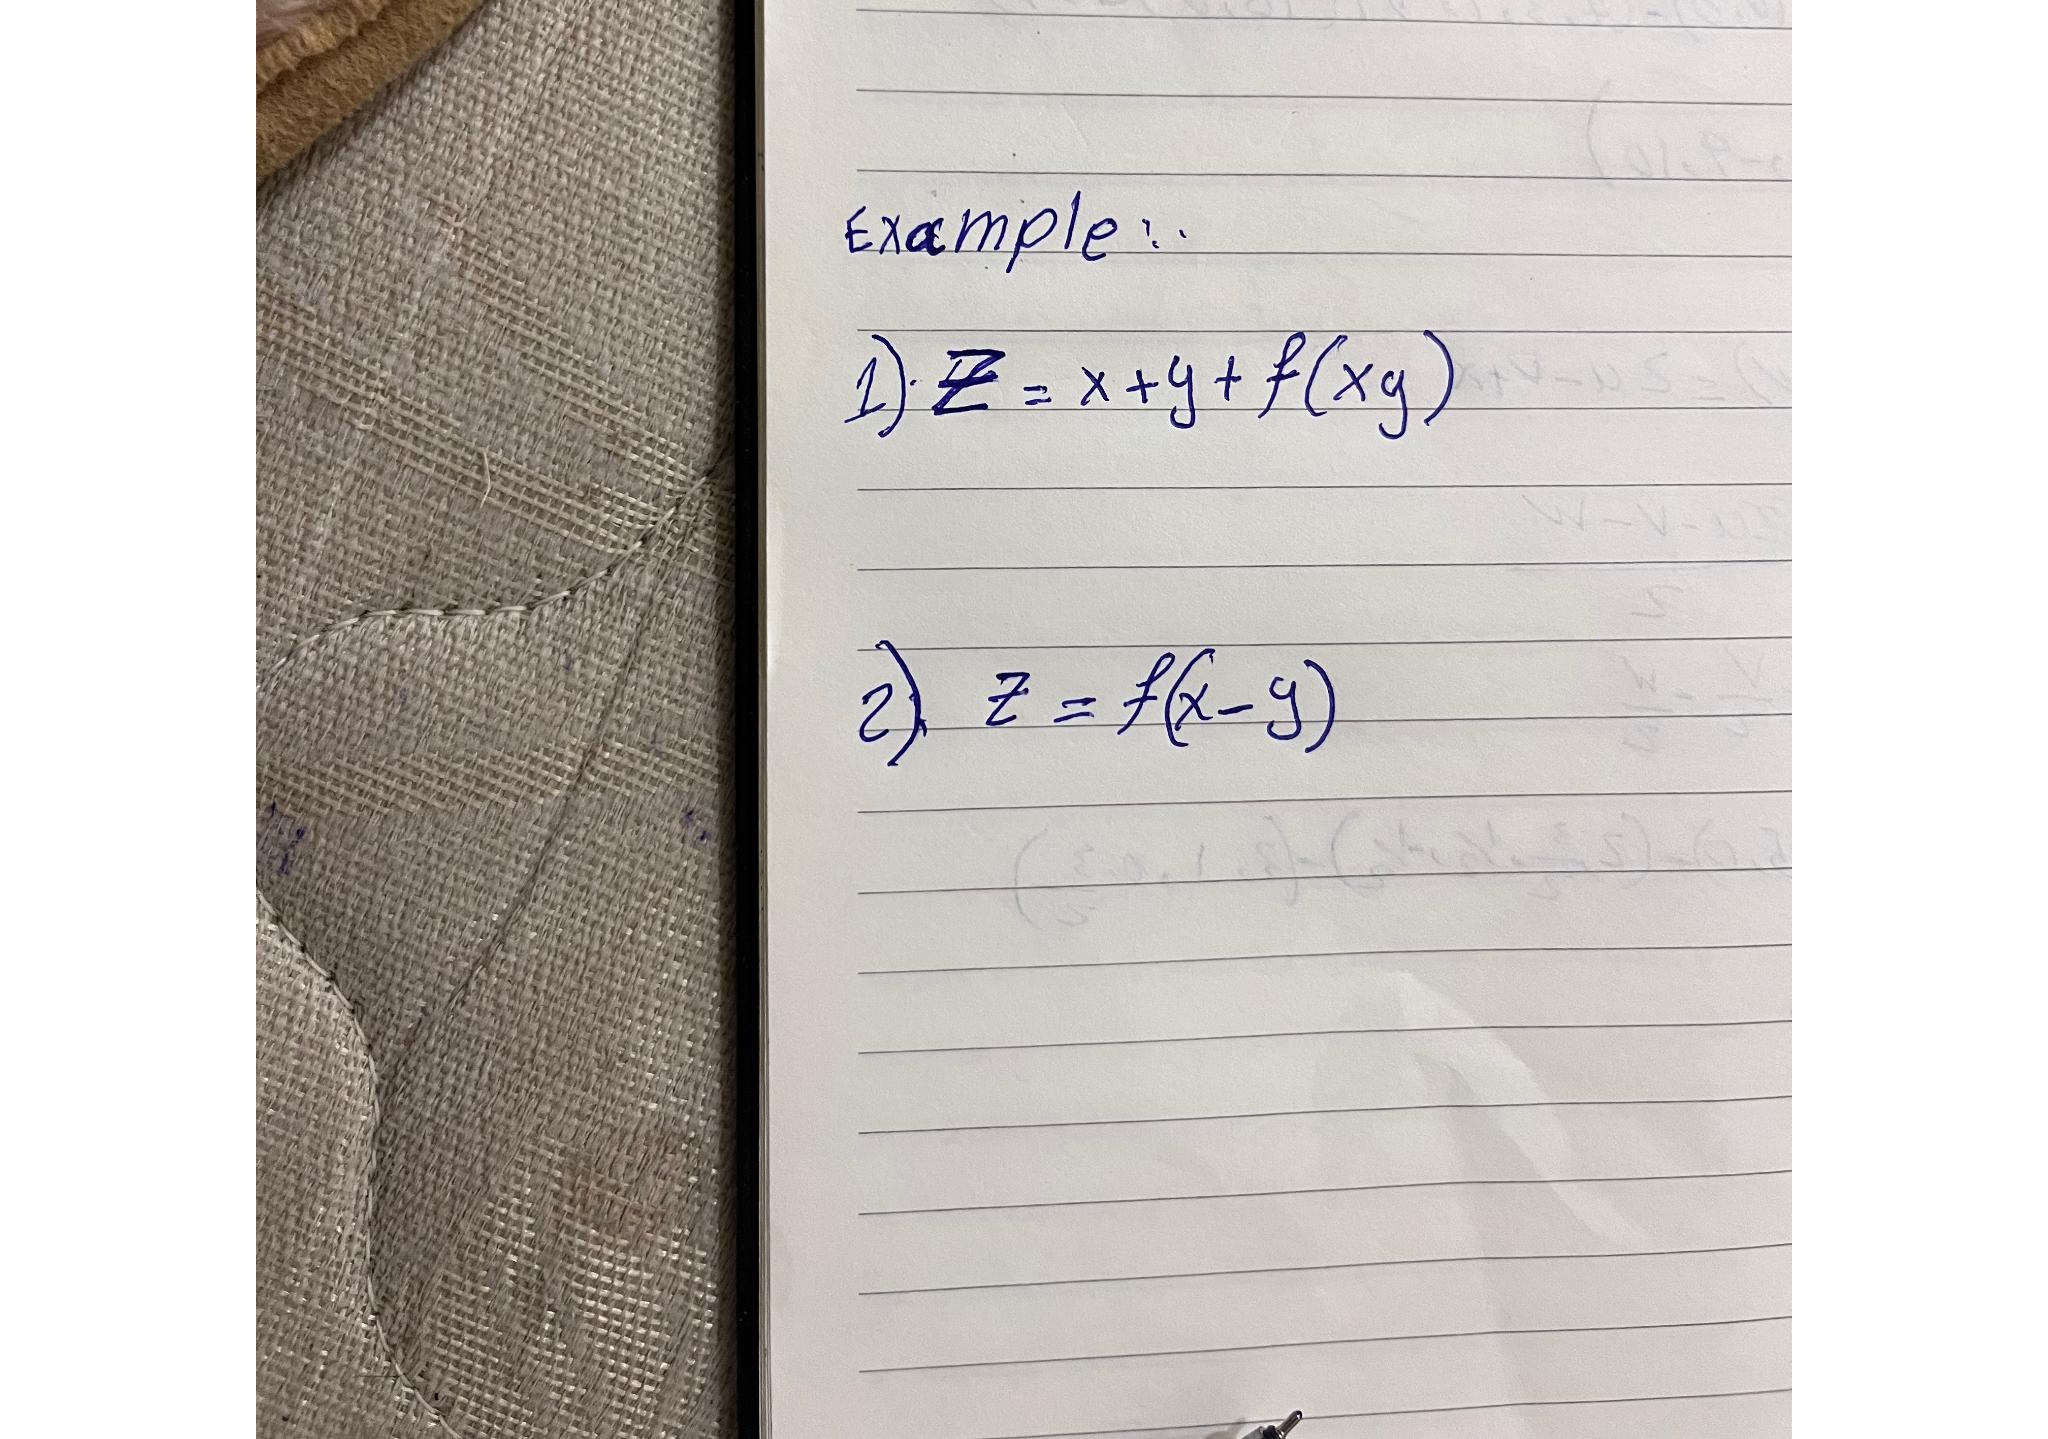 Example:.
1). Z = x+y+f(xy)
2). z = f(x-y)